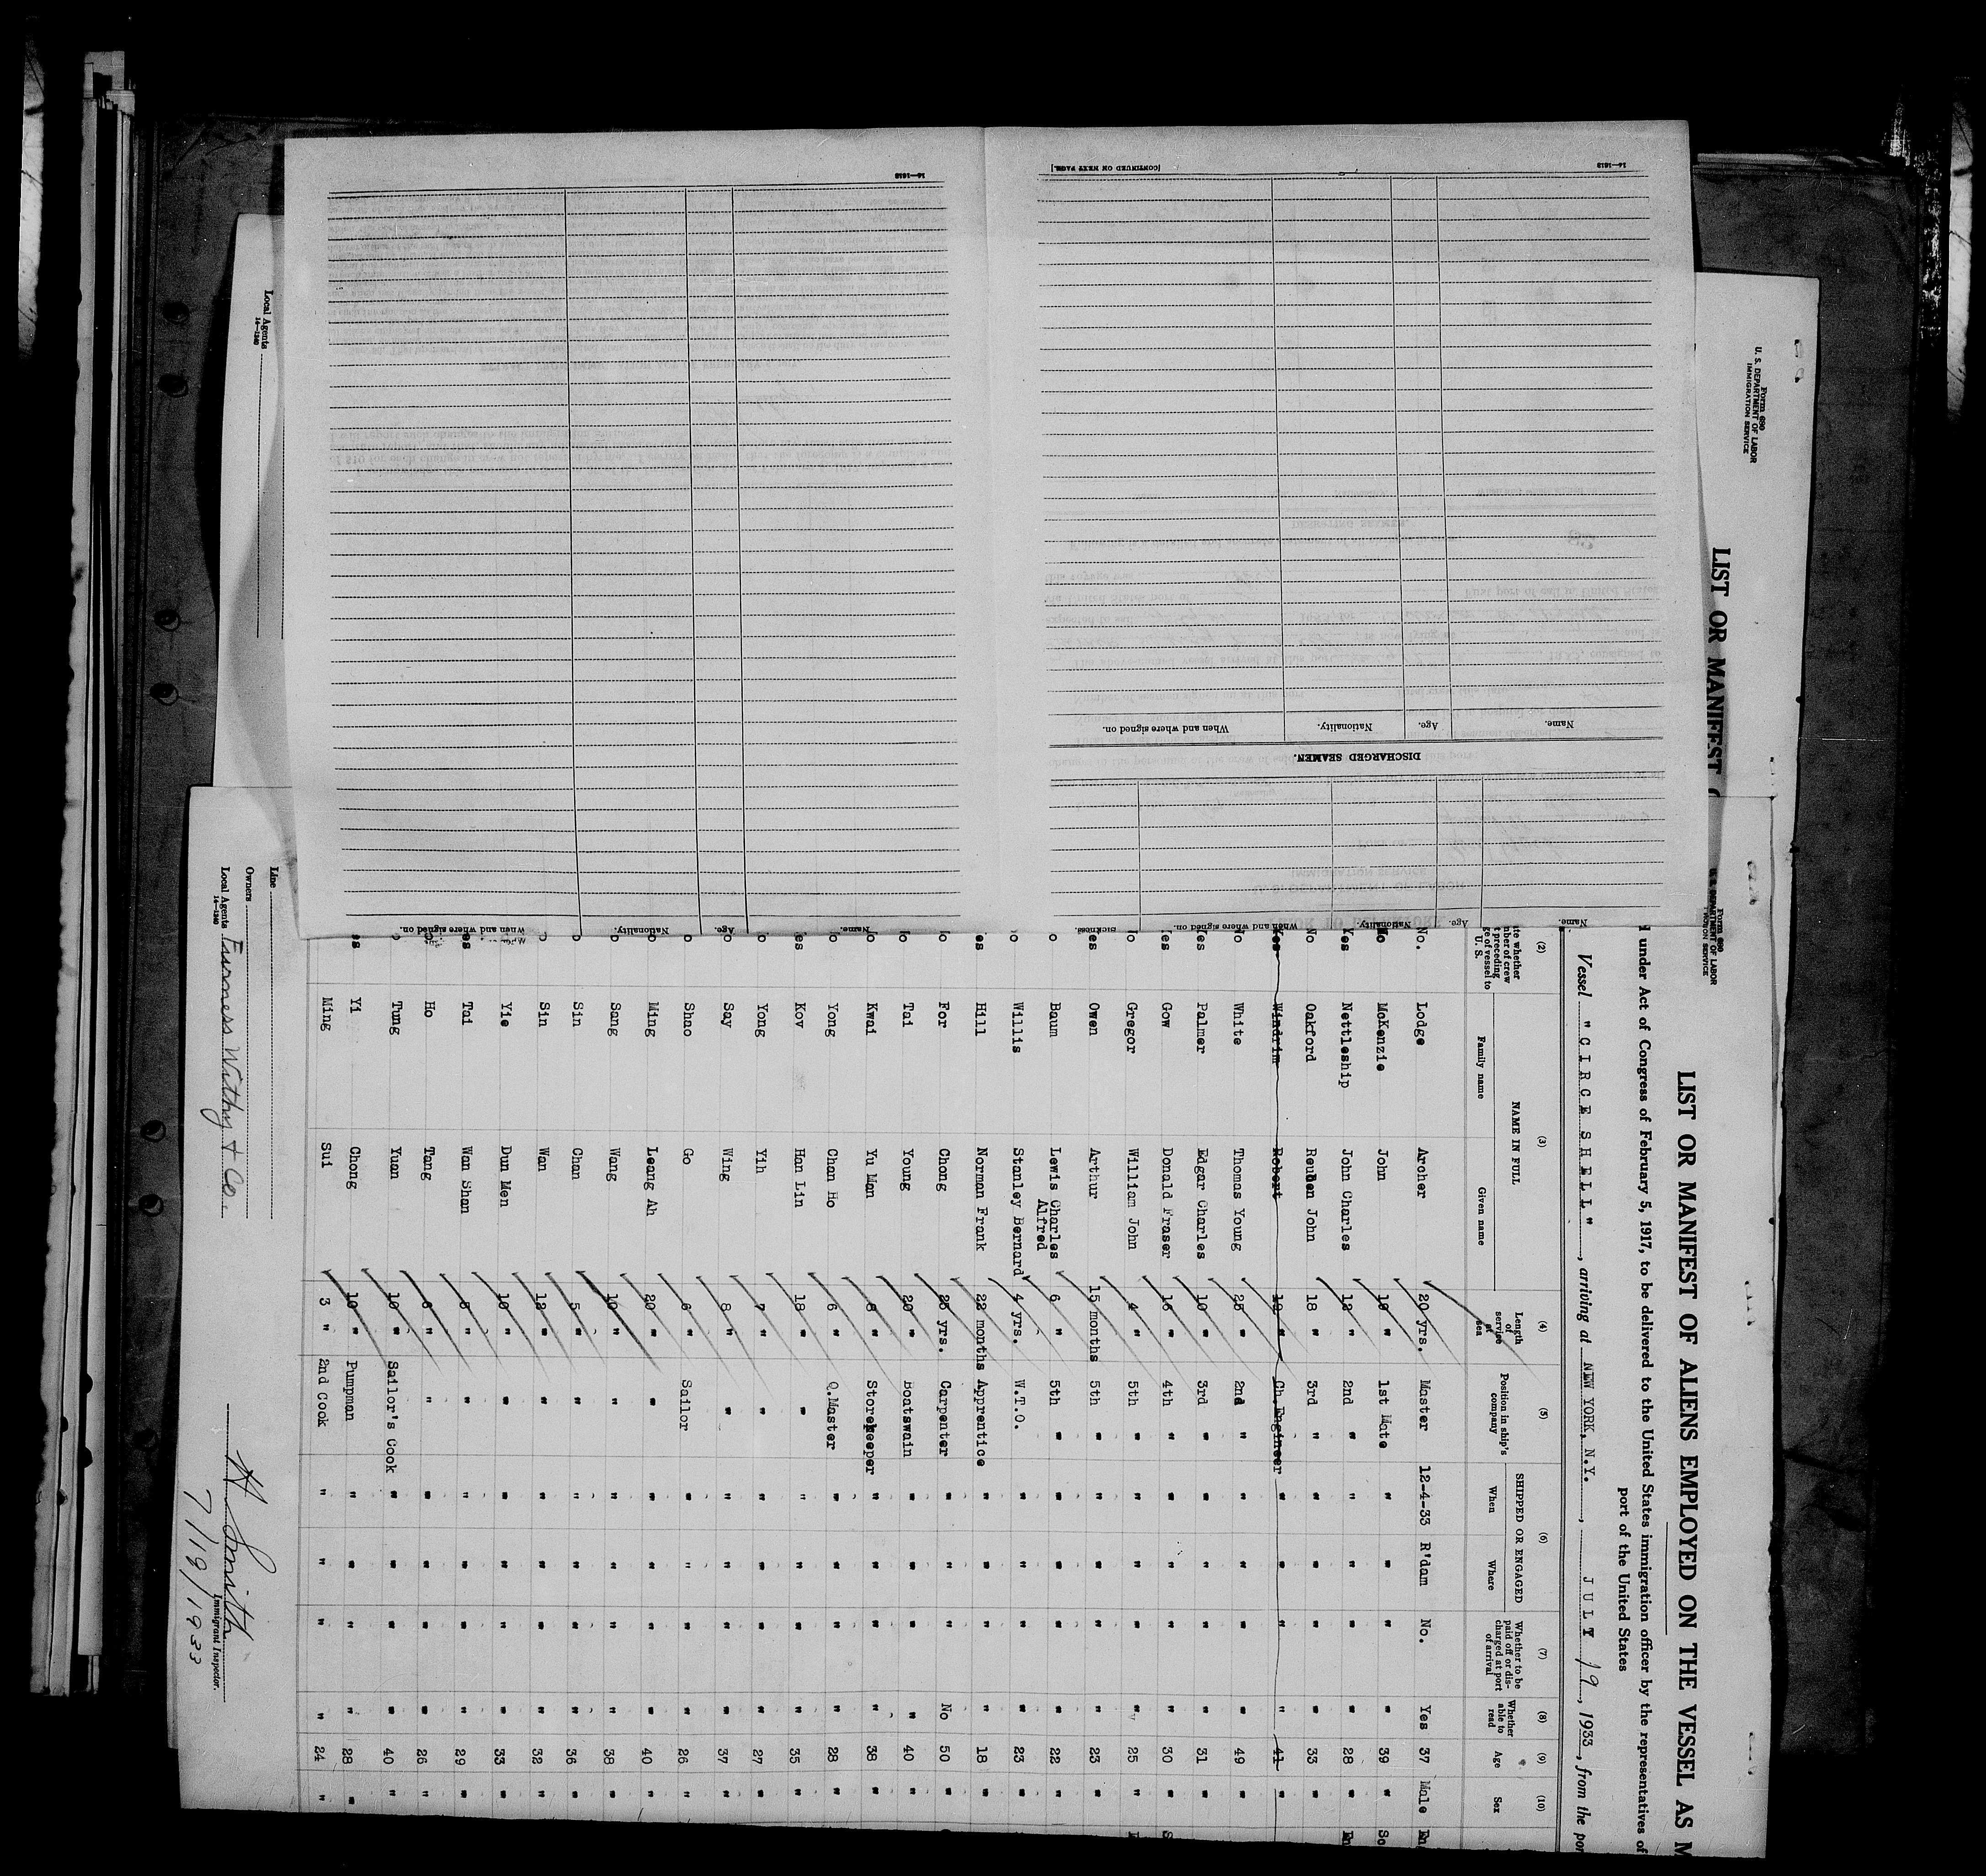 [CONTINUED ON NEXT PAGE.]
14—1618
14—1618
Name.
Age.
Nationality.
When and where signed on.
DISCHARGED SEAMEN.
Name.
Age.
Nationality.
When and where signed on.
Sickness.
Name.
Age.
Nationality.
When and where signed on.
Form 680
U. S. DEPARTMENT OF LABOR
IMMIGRATION SERVICE
LIST OR MANIFEST
Local Agents
14—1240
Form 680
U. S. DEPARTMENT OF LABOR
LIST OR MANIFEST OF ALIENS EMPLOYED ON THE VESSEL AS M
under Act of Congress of February 5, 1917, to be delivered to the United States immigration officer by the representatives of
port of the United States
Vessel "CIRCE SHELL", arriving at NEW YORK, N.Y., JULY 19, 1933, from the por
(2) (3) (4) (5) (6) (7) (8) (9) (10)
NAME IN FULL
Family name Given name
Length of service at sea
Position in ship's company
SHIPPED OR ENGAGED
When Where
Whether to be paid off or discharged at port of arrival
Whether able to read
Age
Sex
No. Lodge Archer 20 yrs. Master 12-4-33 R'dam No. Yes 37 Male En
No McKenzie John 19 " 1st Mate " " " " 39 " Sc
Yes Nettleship John Charles 12 " 2nd " " " " " 28 " En
No Oakford Reuben John 18 " 3rd " " " " " 33 "
Yes Windrim Robert 19 " Ch.Engineer " " " " 41 "
No White Thomas Young 25 " 2nd " " " " " 49 "
es Palmer Edgar Charles 10 " 3rd " " " " " 31 "
es Gow Donald Fraser 16 " 4th " " " " " 30 " S
o Gregor William John 4 " 5th " " " " " 25 "
es Owen Arthur 15 months 5th " " " " " 23 "
o Baum Lewis Charles Alfred 6 " 5th " " " " " 22 "
o Willis Stanley Bernard 4 yrs. W.T.O. " " " " 23 "
es Hill Norman Frank 22 months Apprentice " " " " 18 "
o For Chong 25 yrs. Carpenter " " " No 50 "
o Tai Young 20 " Boatswain " " " " 40 "
o Kwai Yu Man 8 " Storekeeper " " " " 38 "
o Yong Chan Ho 6 " Q.Master " " " " 28 "
es Kov Han Lin 18 " " " " " " 35 "
o Yong Yih 7 " " " " " " 27 "
o Say Wing 8 " " " " " " 37 "
o Shao Go 6 " Sailor " " " " 26 "
o Ming Leang Ah 20 " " " " " " 40 "
o Sang Wang 10 " " " " " " 38 "
o Sin Chan 5 " " " " " " 36 "
o Sin Wan 12 " " " " " " 32 "
Yie Dun Men 10 " " " " " " 33 "
es Tai Wan Shan 8 " " " " " " 29 "
o Ho Tang 6 " " " " " " 26 "
o Tung Yuan 10 " Sailor's Cook " " " " 40 "
es Yi Chong 10 " Pumpman " " " " 28 "
Ming Sui 3 " 2nd Cook " " " " 24 "
Line
Owners
Local Agents Furness Withy & Co.
14—1240
H Smith
Immigrant Inspector.
7/19/1933